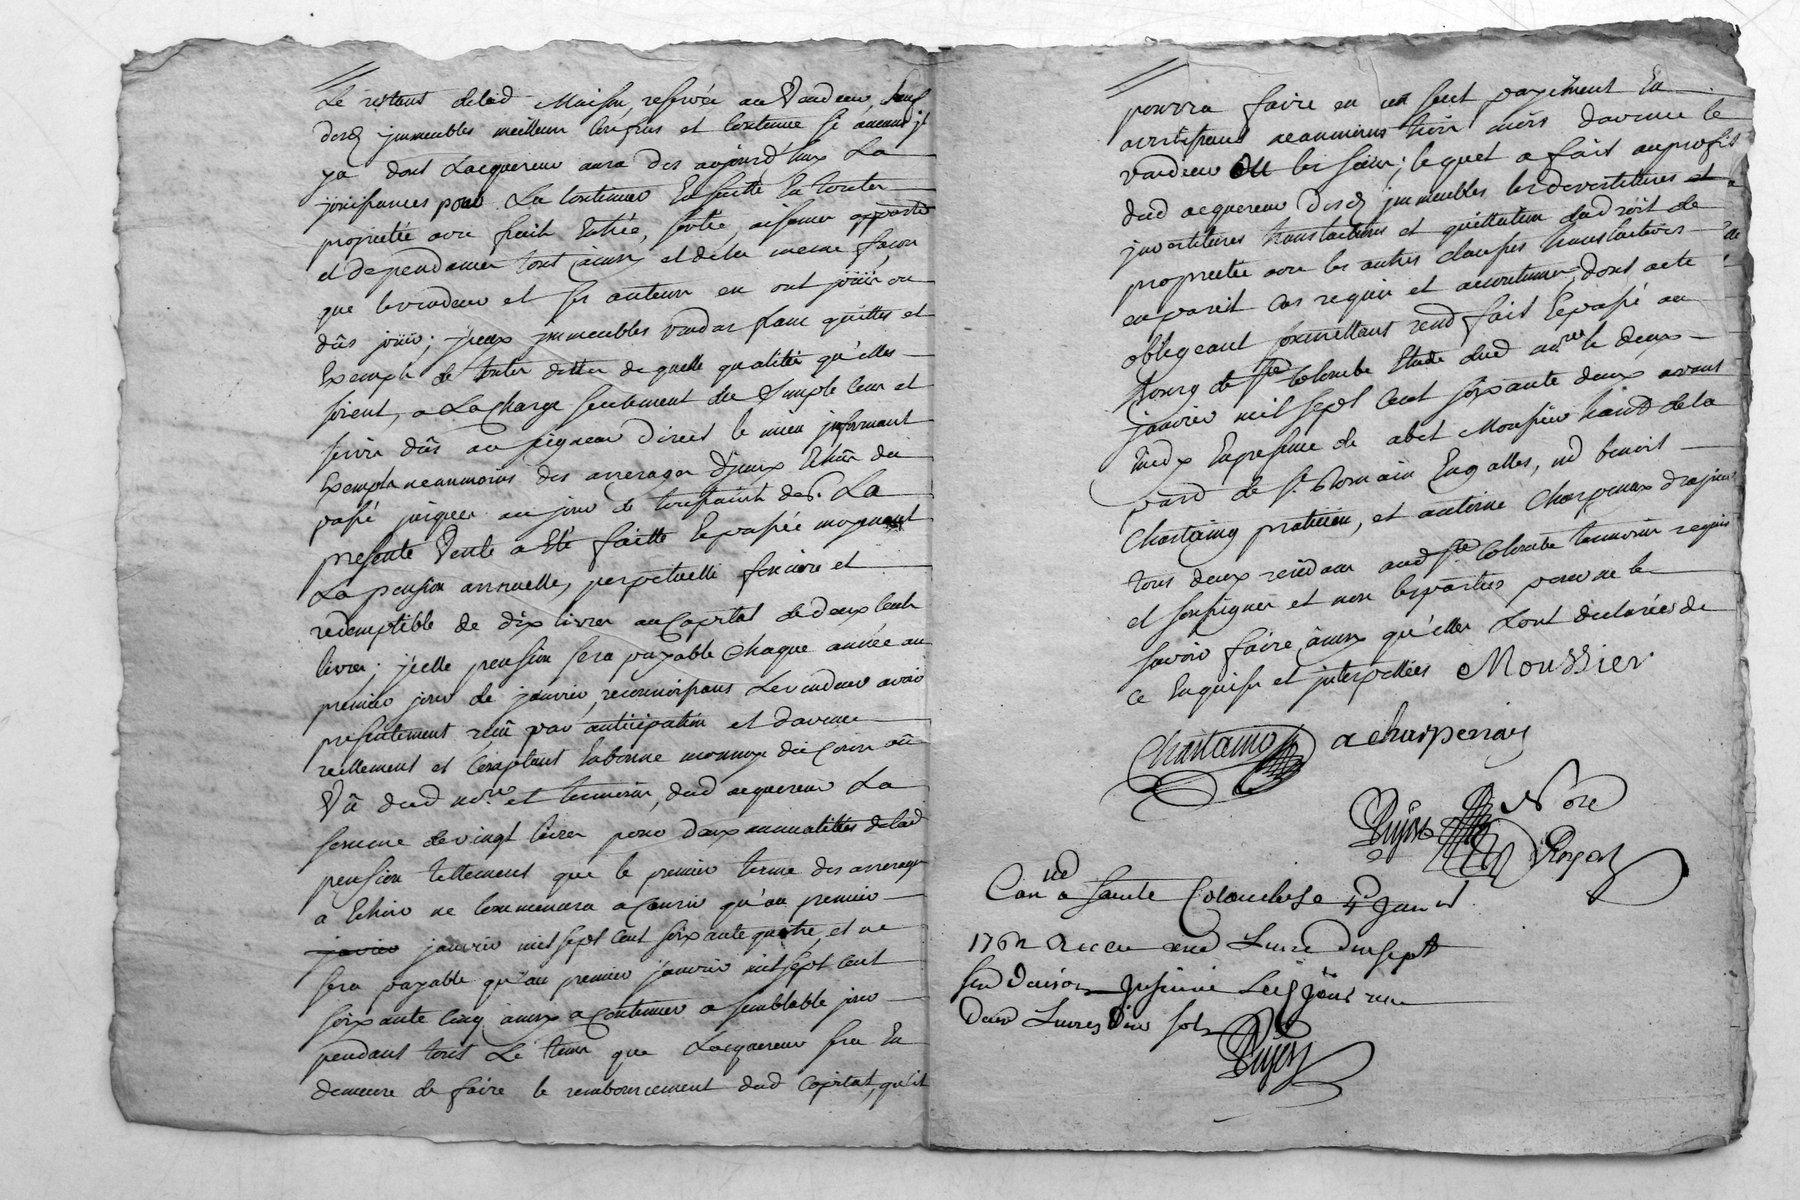 Le restant delad Maison, reservée au Vendeur, sauf
desd jmmeubles meilleurs confins et contenue sy aucuns jl
ya dont Lacquereur aura des aujourd'huy La
jouissances pour La contenue Ensuitte En toutte
proprietté avec fruits Entrée, sortie, aisances apparte
et dependances tout ainsy et dela meme façon
que levendeur et ses auteurs en ont jouis ou
dûs jouir; jceux jmmeubles vendus franc quittes et
Exempts de touttes dettes de quelle qualittés qu'elles
soient, a Lacharge seulement du Simple Cens et
servis dûs au seigneur direct le mieux jnformant
Exempts neanmoins des arrerages d'jceux Echûs du
passé jusques au jour de toussaint der. La
presente Vente a Eté faitte Et passée moyenant
La pension annuelle, perpetuelle fonciere et
redemptible de dix livres au Capital de deux Cents
livres; jcelle pension sera payable chaque année au
premier jour de janvier, reconnoissans Levendeur avoir
presentement reçû par anticipation et d'avance
reellement et Comptant En bonne monnoye du Cours au
Vû dud nore et temoins, dud acquereur La
somme de vingt livres pour deux annualittés delad
pension tellement que le premier terme des arrerages
a Echoir ne commencera a Courir qu'au premier
janvier mil sept cent soixante quatre, et ne
sera payable qu'au premier janvier mil sept cent
soixante cinq ainsy a continuer a semblable jour
pendant tout Le tems que Lacquereur sera En
demeure de faire le remboursement dud Capital, qu'il
pourra faire en un seul payement En
avertissant neanmoins trois mois davance le
vendeur ou les siens; lequel a fait au profit
dud acquereur desd jmmeubles les devestitures et
jnvestitures translations et quittation dud droit de
proprietté avec les autres clauses translatives
en pareil cas requis et accoutumés, dont acte
obligeant soumettant rend fait Et passé au
bourg de Ste Colombe Etude dud nore le deux
janvier mil sept cent soixante deux avant
midy En presence de abel Monssier haud dela
parr de St Romain En galles, sd benoit
Chastaing praticien, et antoine Charpenay drapier
tous deux residans aud Ste Colombe temoins requis
et soussignés et non les parties pour ne le
savoir faire ainsy qu'elles L'ont declarées de
ce Enquises et jnterpellées Moussier
Chastaing acharpenay
Pujos Nore
Royal
Con a sainte Colombe Le 4 Janv
1762 Receu une Livre dix sept
deux Livres dix sols
Pujos